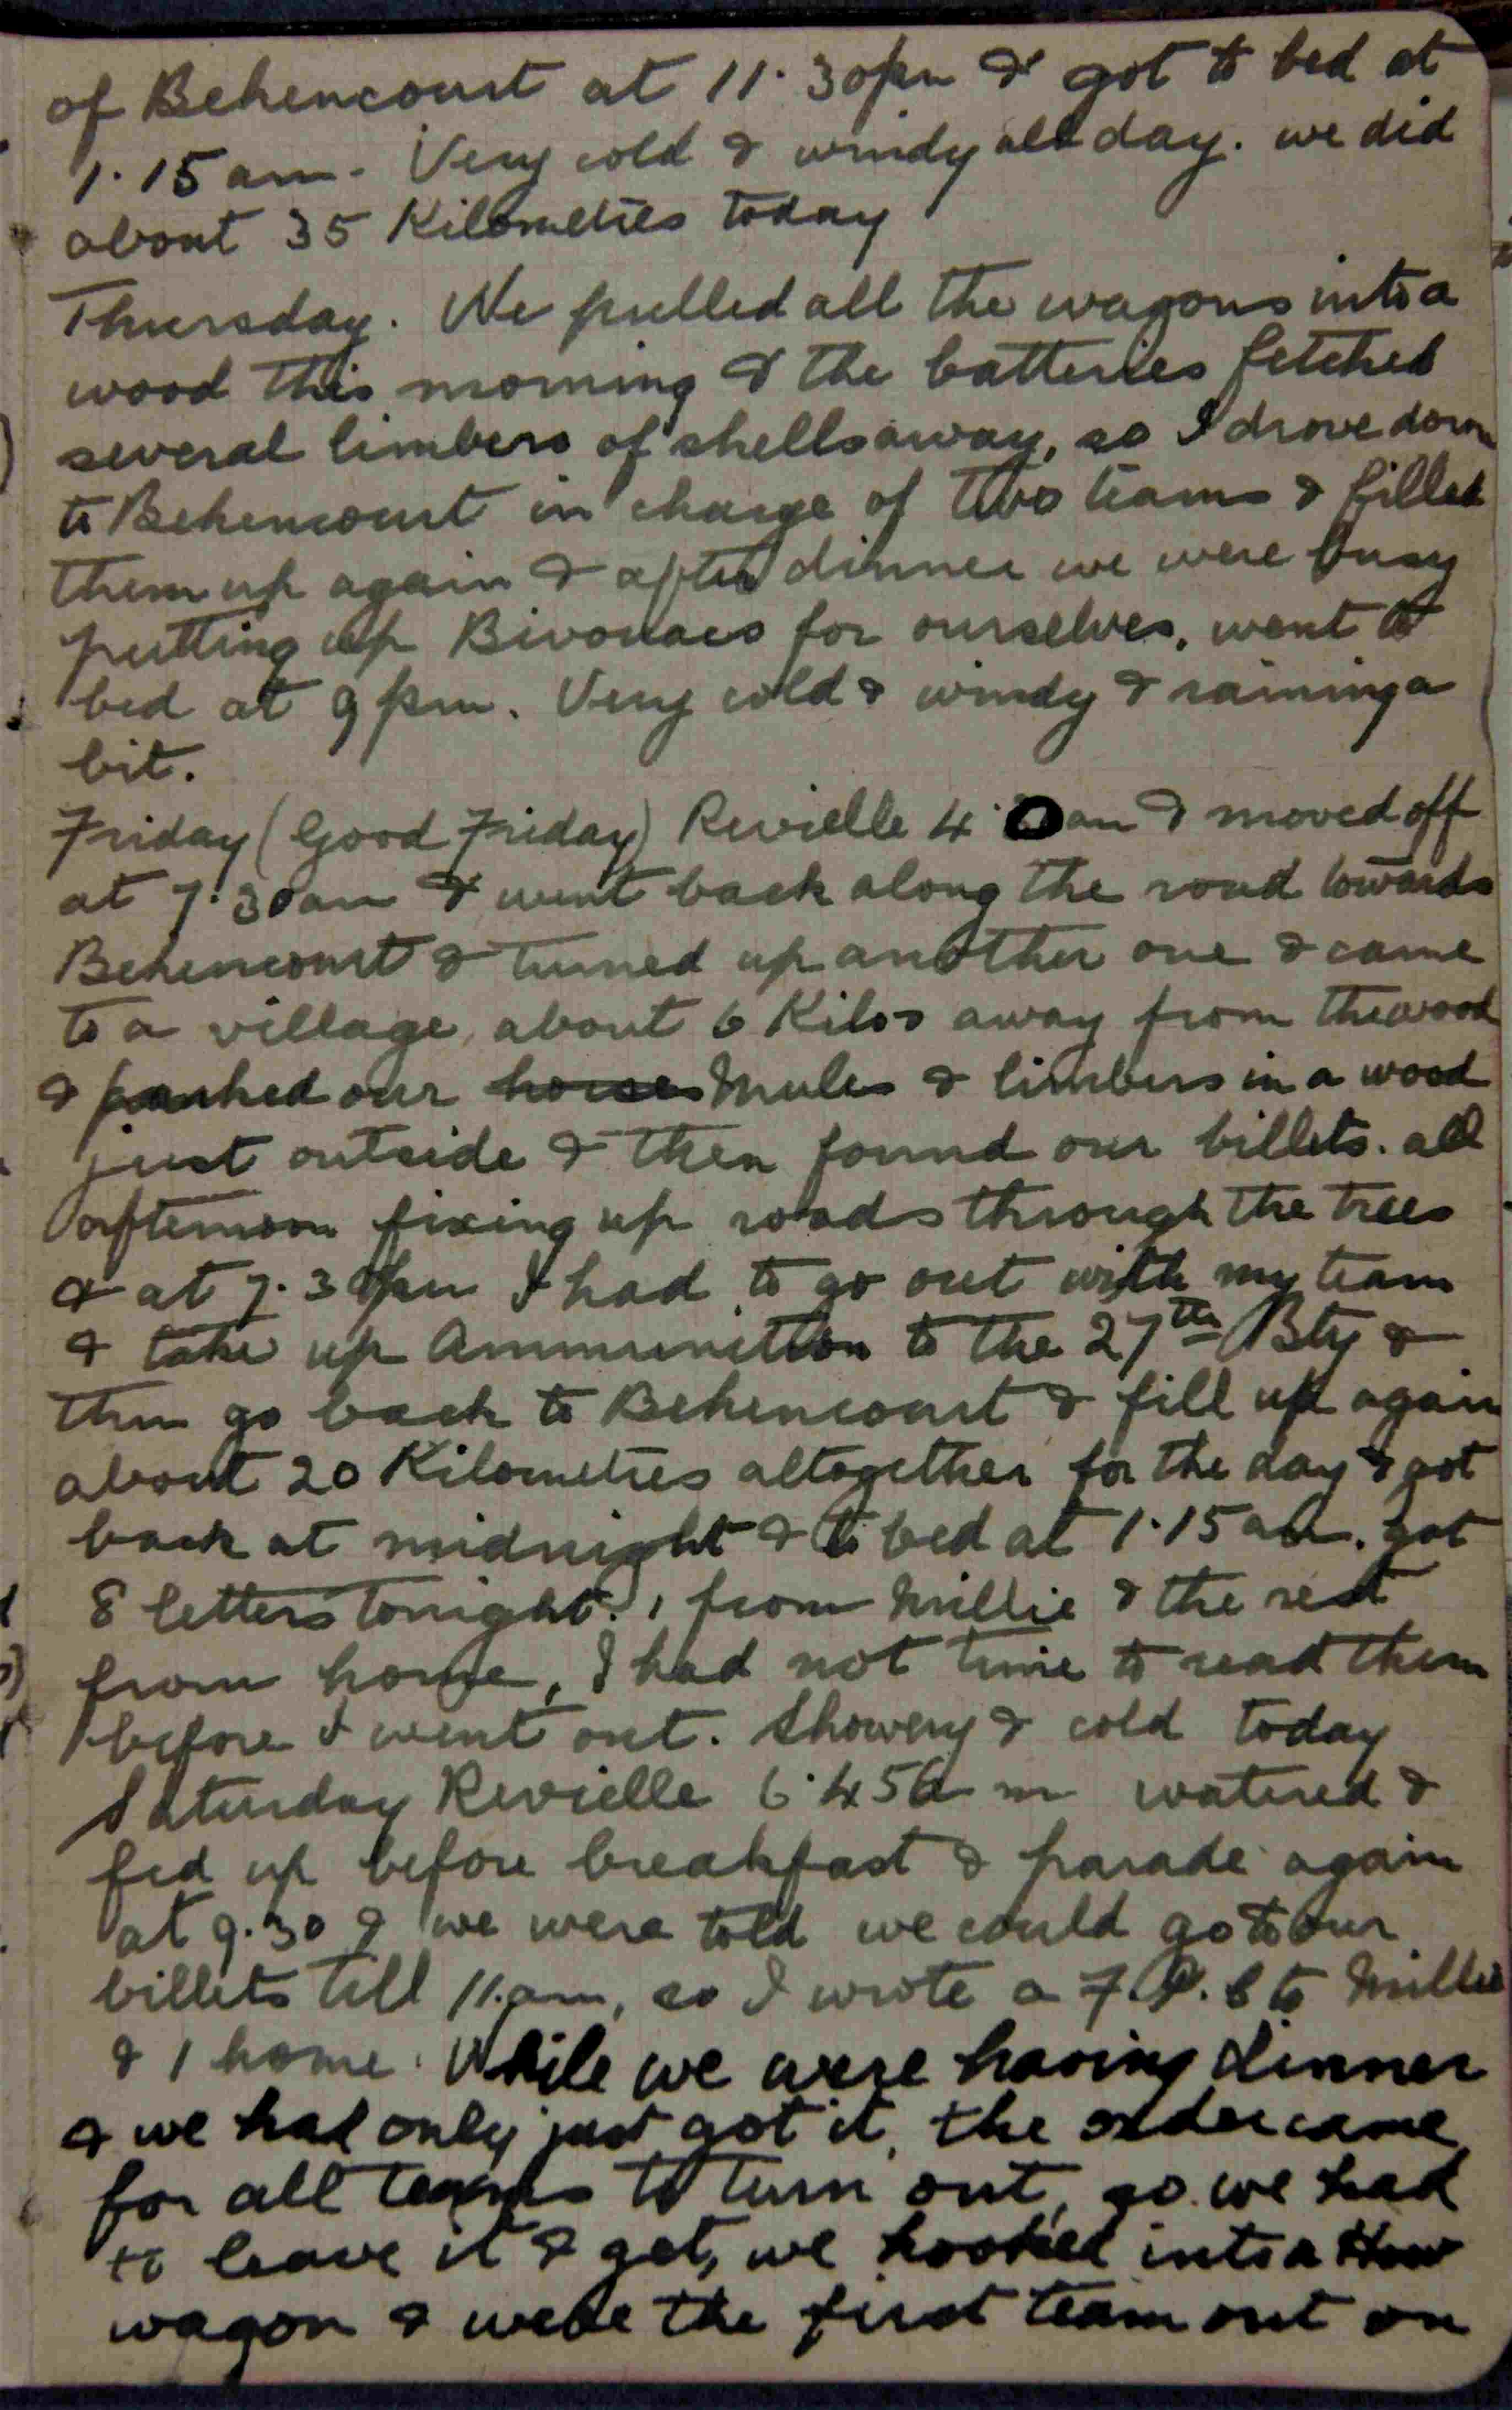 of Behencourt at 11.30pm & got to bed at
1.15 am. Very cold & windy all day. we did
about 35 Kilometres today
Thursday. We pulled all the wagons into a
wood this morning & the batteries fetched
several limbers of shells away, so I drove down
to Behencourt in charge of two teams & filled
them up again & after dinner we were busy
putting up Bivouacs for ourselves, went to
bed at 9 pm. Very cold & windy & raining a
bit.
Friday (Good Friday) Revielle 4.0 am & moved off
at 7.30 am & went back along the road towards
Behencourt & turned up another one & came
to a village about 6 Kilos away from the wood
& parked our horses Mules & limbers in a wood
just outside & then found our billets. all
afternoon fixing up roads through the trees
& at 7.30pm I had to go out with my team
& take up Ammunition to the 27th Bty &
then go back to Behencourt & fill up again
about 20 Kilometres altogether for the day & got
back at midnight & to bed at 1.15 am. got
8 letters tonight. 1 from Millie & the rest
from home, I had not time to read them
before I went out. Showery & cold today
Saturday Revielle 6.45 a m watered &
fed up before breakfast & parade again
at 9.30 & we were told we could go to our
billets till 11.am, so I wrote a F.P.C to Millie
& 1 home. While we were having dinner
& we had only just got it, the order came
for all teams to turn out, so we had
to leave it & get, we hooked into a How
wagon & were the first team out on